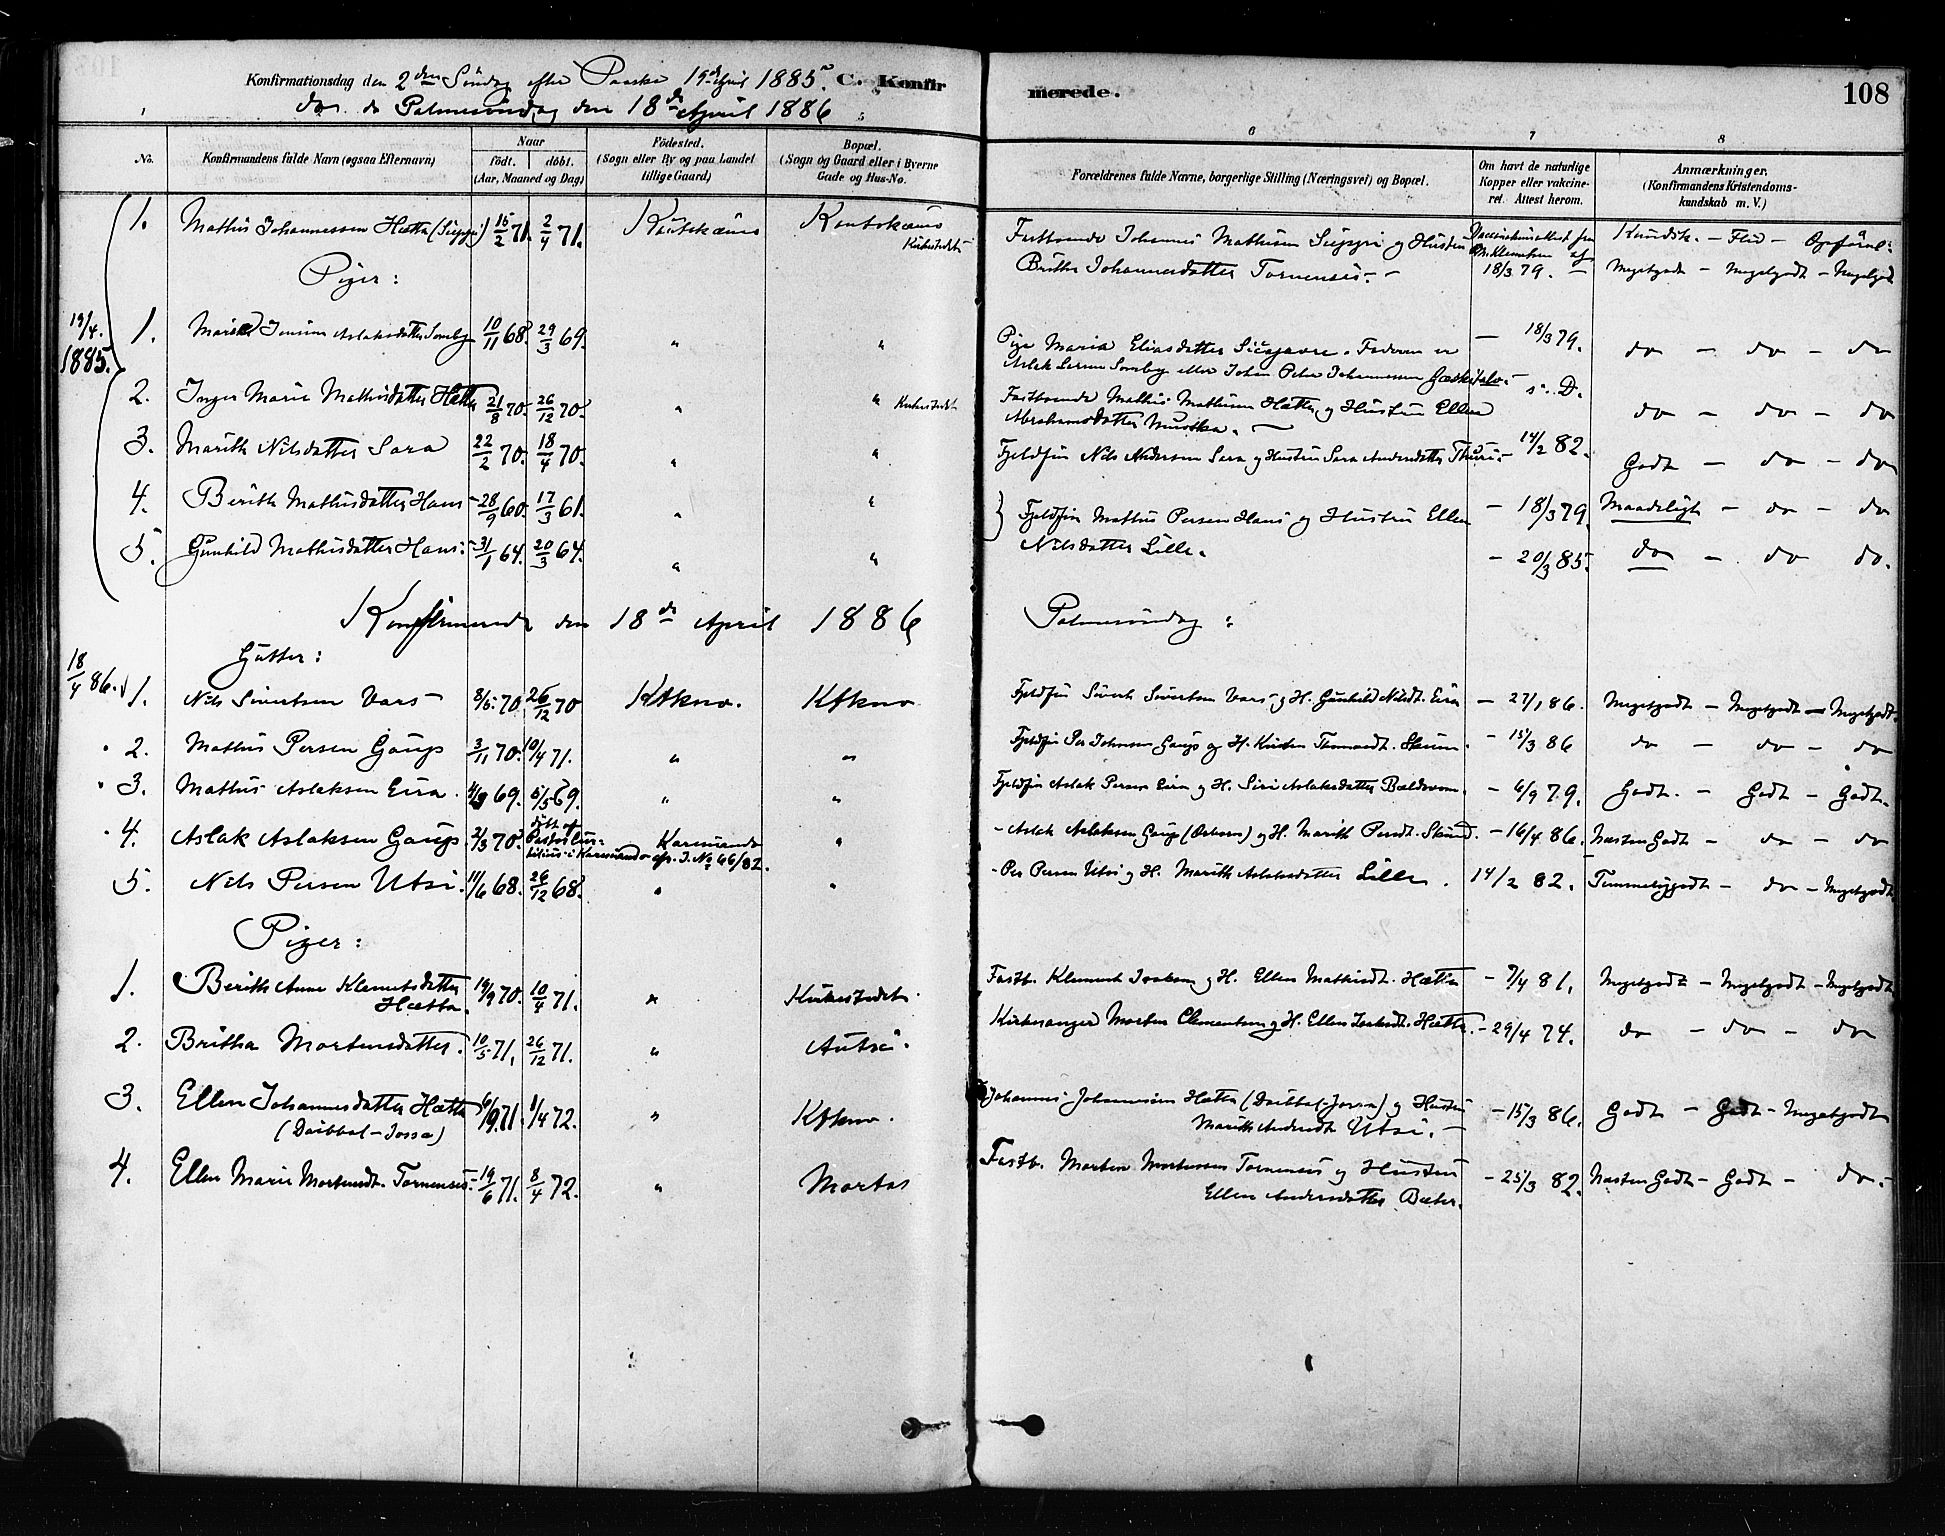 Konfirmationsdag den 2den Søndag efter Paaske 19de April 1885. C. Konfirmerede. 108
do. do Palmesøndag den 18de April 1886
1 6 7 8
No. Konfirmandens fulde Navn (ogsaa Efternavn) Naar født. døbt. (Aar, Maaned og Dag) Fødested. (Sogn eller By og paa Landet tillige Gaard) Bopæl. (Sogn og Gaard eller i Byerne Gade og Hus-No. Forældrenes fulde Navne, borgerlige Stilling (Næringsvei) og Bopæl. Om havt de naturlige Kopper eller vakcineret. Attest herom. Anmærkninger. (Konfirmandens Kristendomskundskab m. V.)
1. Mathis Johannessen Hætta (Siuppi) 15/2 71. 2/4 71. Koutokæino Koutokæino Kirkestedet Fastboende Johannes Mathisen Siuppi og Hustru Vaccinationsattest fra Kundsk. – Flid – Opførsel:
Piger: Britha Johannesdatter Tornensis – 18/3 79. – Megetgodt – Megetgodt – Megetgodt
19/4. 1885.
1. Maria Aslaksdatter Somby 10/11 68. 29/3 69. " " Pige Maria Eliasdatter Siegjavre. Faderen er – 18/3 79. do – do – do
Aslak Larsen Somby eller Johan Peter Johannessen
2. Inger Marie Mathisdatter Hætta 21/8 70. 26/12 70. " " Kirkestedet Fastboende Mathis Mathisen Hætta og Hustru Ellen s. D. do – do – do
Abrahamsdatter Muotka. –
3. Marith Nilsdatter Sara 22/2 70. 18/4 70. " " Fjeldfin Nils Andersen Sara og Hustru Sara Andersdatter Thuri. – 14/2 82. Godt – do – do
4. Berith Mathisdatter Hans – 28/9 60. 17/3 61. " " } Fjeldfin Mathis Persen Hans og Hustru Ellen – 18/3 79. Maadeligt – do – do
5. Gunhild Mathisdatter Hans: 31/1 64. 20/3 64. " " Nilsdatter Lille. – 20/3 85. do – do do.
Konfirmerede den 18de April 1886 Palmesøndag:
Gutter:
18/4 86. 1. Nils Sivertsen Vars – 8/5 70 26/12 70 Ktkno. Ktkno Fjeldfin Sivert Sivertsen Vars og H. Gunhild Nilsdt. Eira – 27/1 86. Megetgodt – Megetgodt – Megetgodt
" 2. Mathis Persen Gaup 3/1 70. 10/4 71. " " Fjeldfin Per Johnsen Gaup og H. Kirsten Thomasdt. Skum. – 15/3 86 do – do – do
" 3. Mathis Aslaksen Eira. 4/3 69. 5/5 69. " " Fjeldfin Aslak Persen Eira og H. Siri Aslaksdatter Bældovom. – 6/9 79. Godt. – Godt – Godt.
" 4. Aslak Aslaksen Gaup. 2/3 70. døbt af Pastor i Karesuando afs. J. No 46/82. Karesuando " – Aslak Aslaksen Gaup og H. Marith Persdt. Skum. – 16/4 86. Næsten Godt – do – do
5. Nils Persen Utsi. 11/6 68. 26/12 68. " " – Per Persen Utsi og H. Marith Aslaksdatter Lille. 14/2 82. Temmeliggodt – do – Megetgodt
Piger:
1. Berith Anne Klemetsdatter Hætta. 19/9 70. 10/4 71. " Kirkestedet. Fastb. Klemet Isaksen og H. Ellen Mathisdt. Hætta – 7/4 81. Megetgodt – Megetgodt – Megetgodt
2. Britha Mortensdatter. 10/5 71. 26/12 71. " Autsi. Kirkesanger Morten Clementsen og H. Ellen Isaksdt. Hætta. – 29/4 74. do – do – do
3. Ellen Johannesdatter Hætta (Daibbal-Jossa) 6/9 71. 1/4 72. " Ktkno. Johannes Johannesen Hætta (Daibbal-Jossa) og Hustru – 15/3 86. Godt – Godt – Megetgodt
Marith Andersdt Utsi. –
4. Ellen Marie Mortensdt. Tornensis. 19/6 71. 8/4 72. " Mortas Fastb. Morten Mortensen Tornensis og Hustru – 25/3 82. Næsten Godt – Godt – do. –
Ellen Andersdatter Bæter.